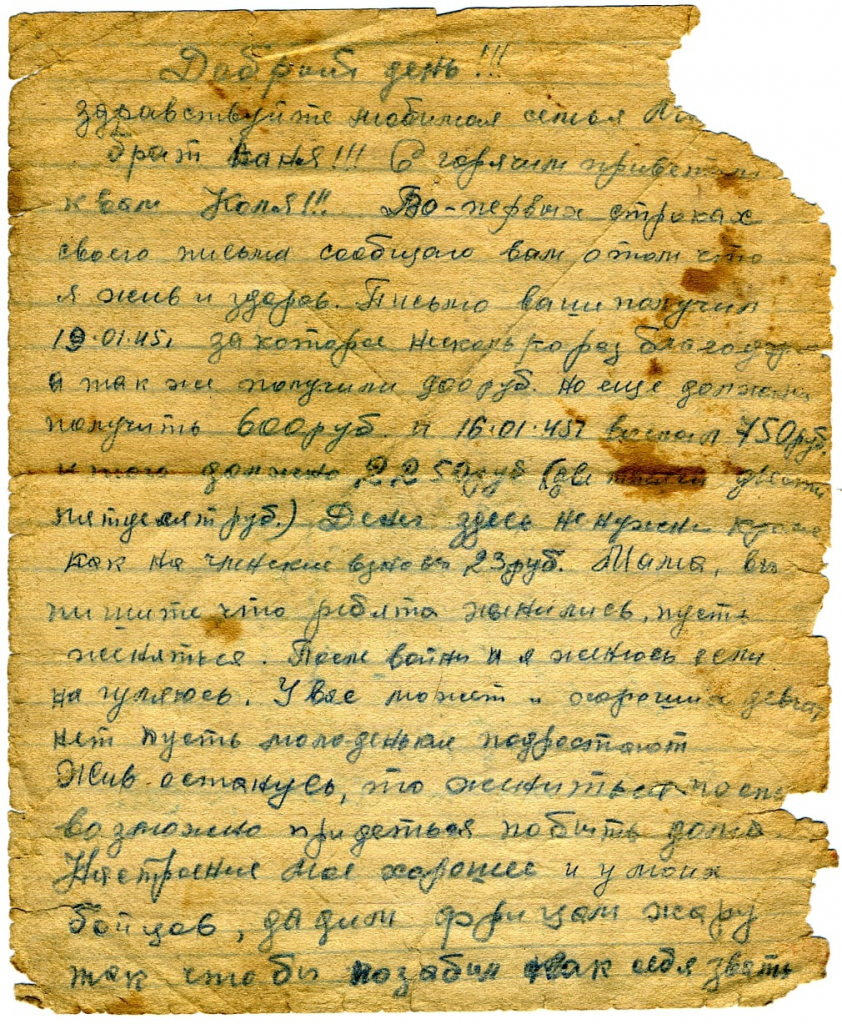 Добрый день!!!
здравствуйте любимая семья
брат Ваня!!! С горячим приветом
к вам Коля!!! Во-первых строках
своего письма сообщаю вам о том что
я жив и здоров. Письмо ваши получил
19.01.45, за которое несколько раз
а так же получили 900 руб. но еще должны
получить 600 руб. и 16.01.45г выслал 750 руб.
итого должно 2250 руб (две тысячи
пятдесят руб.) Денег здесь не нужны кроме
как на членские взносы 23 руб. Мама, вы
пишите что ребята женились, пусть
женяться. После войны и я женюсь если
нагуляюсь. У вас может и хороших девчат
нет пусть молоденькие подрастают
Жив останусь, то жениться
возможно придеться побыть дома
Настроение мое хорошее и у моих
бойцов, дадим фрицам жару
так что бы позабыл как себя звать